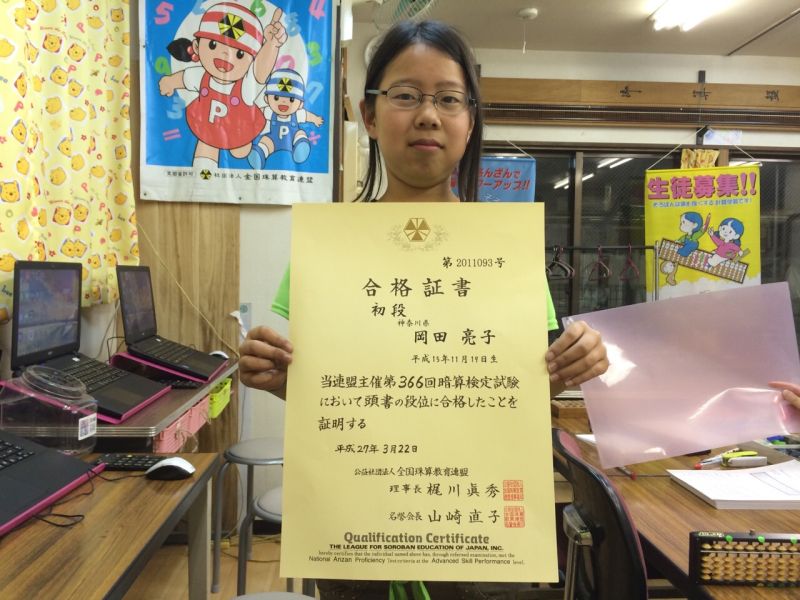 P
P
公益社団法人全国珠算教育連盟
生徒募集!!
第2011093号
合格証書
初段
神奈川県
岡田 亮子
平成15年11月19日生
当連盟主催第366回暗算検定試験
において頭書の段位に合格したことを
証明する
平成27年3月22日
公益社団法人全国珠算教育連盟
理事長 梶川眞秀
名誉会長 山崎直子
Qualification Certificate
THE LEAGUE FOR SOROBAN EDUCATION OF JAPAN, INC.
hereby certifies that the individual named above has, through refereed examination, met the
National Anzan Proficiency Test criteria at the Advanced Skill Performance level.